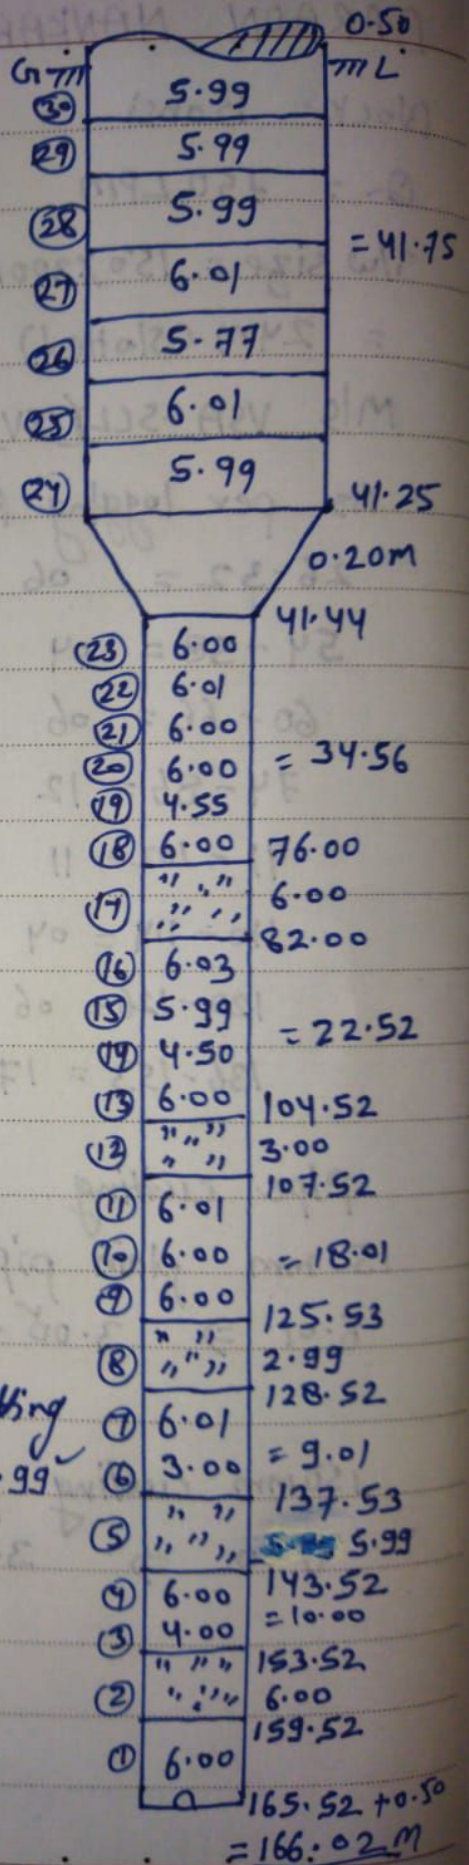 0.50
G L
30 5.99
29 5.99
28 5.99
= 41.75
27 6.01
26 5.77
25 6.01
24 5.99
41.25
0.20M
41.44
23 6.00
22 6.01
21 6.00
20 6.00 = 34.56
19 4.55
18 6.00 76.00
17 " " " 6.00
" " "
82.00
16 6.03
15 5.99 = 22.52
14 4.50
13 6.00 104.52
12 " " " 3.00
" "
107.52
11 6.01
10 6.00 = 18.01
9 6.00
125.53
8 " " 2.99
" " "
128.52
7 6.01
= 9.01
6 3.00
.99
137.53
5 " " 5.99
" " "
143.52
4 6.00 = 10.00
3 4.00
153.52
2 " " " 6.00
" " " "
159.52
1 6.00
165.52 + 0.50
= 166.02 M